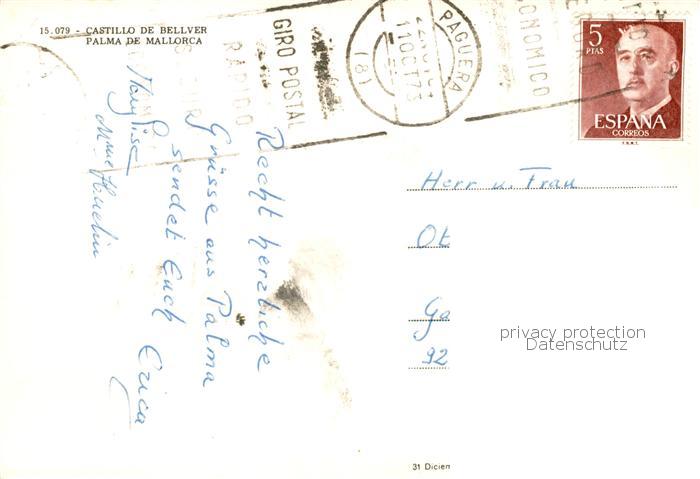 15.079 - CASTILLO DE BELLVER
PALMA DE MALLORCA
GIRO POSTAL
RAPIDO
PAGUERA
11 OCT 73
(8)
5
PTAS
ESPAÑA
CORREOS
F.N.M.T.
Recht herzliche
Grüsse aus Palma
sendet Euch Erica
Mme
Herr u. Frau
Ot
Ga
92
privacy protection
Datenschutz
31 Dicien